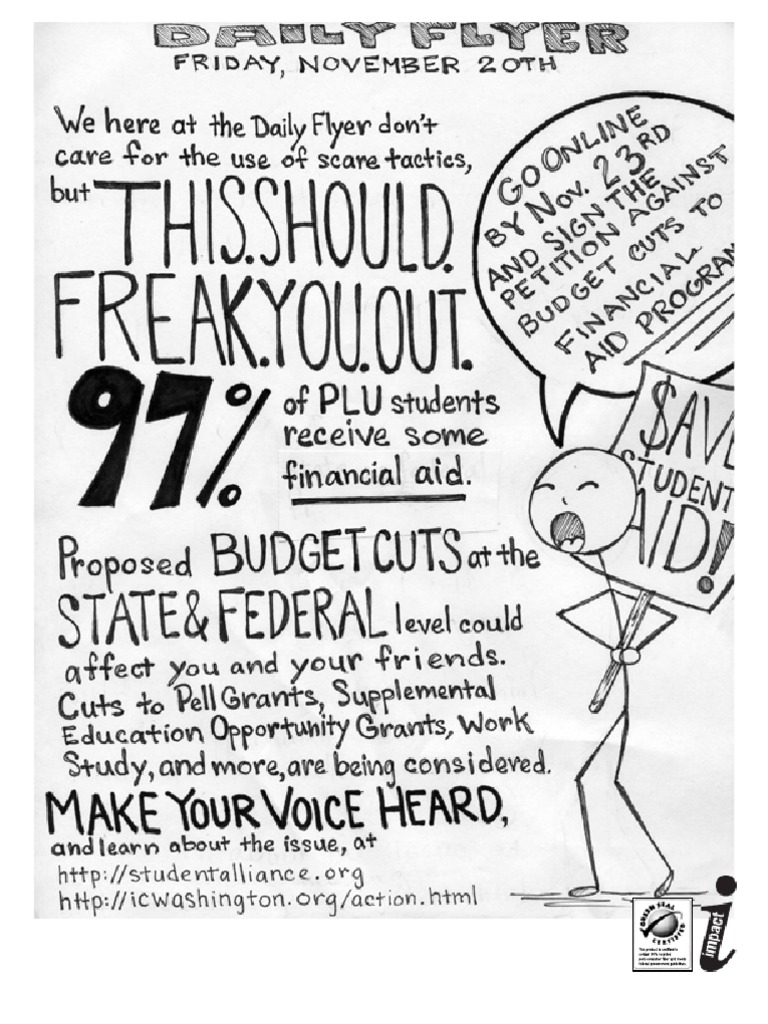 DAILY FLYER
FRIDAY, NOVEMBER 20TH
We here at the Daily Flyer don't
care for the use of scare tactics,
but THIS.SHOULD.
FREAK.YOU.OUT.
97% of PLU students
receive some
financial aid.
Proposed BUDGET CUTS at the
STATE & FEDERAL level could
affect you and your friends.
Cuts to Pell Grants, Supplemental
Education Opportunity Grants, Work
Study, and more, are being considered.
MAKE YOUR VOICE HEARD,
and learn about the issue, at
http://studentalliance.org
http://icwashington.org/action.html
GO ONLINE
BY NOV. 23RD
AND SIGN THE
PETITION AGAINST
BUDGET CUTS TO
FINANCIAL
AID PROGRAM
$AVE
STUDENT
AID!
GREEN SEAL
CERTIFIED
impact